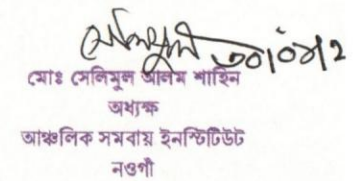 মোঃ সেলিমুল আলম শাহিন
অধ্যক্ষ
আঞ্চলিক সমবায় ইনস্টিটিউট
নওগাঁ